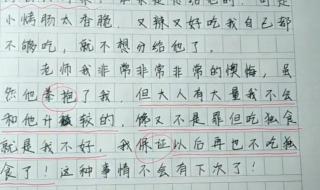 小烤肠太香脆，又辣又好吃我自己都
不够吃，就不想分给他了。
老师我非常非常非常的懊悔，虽
然他举抱了我，但大人有大量我不会
和他计较的，馋又不是罪但吃独食
就是我不好，我保证以后再也不吃独
食了！这种事情不会有下次了！